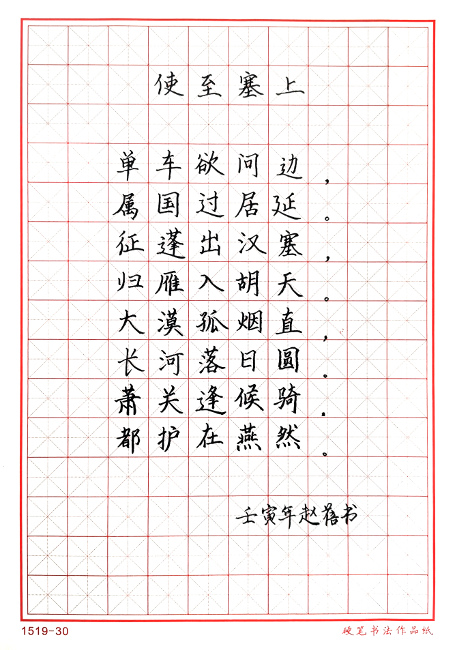 使至塞上
单车欲问边，
属国过居延。
征蓬出汉塞，
归雁入胡天。
大漠孤烟直，
长河落日圆。
萧关逢候骑，
都护在燕然。
壬寅年赵蓓书
1519-30
硬笔书法作品纸